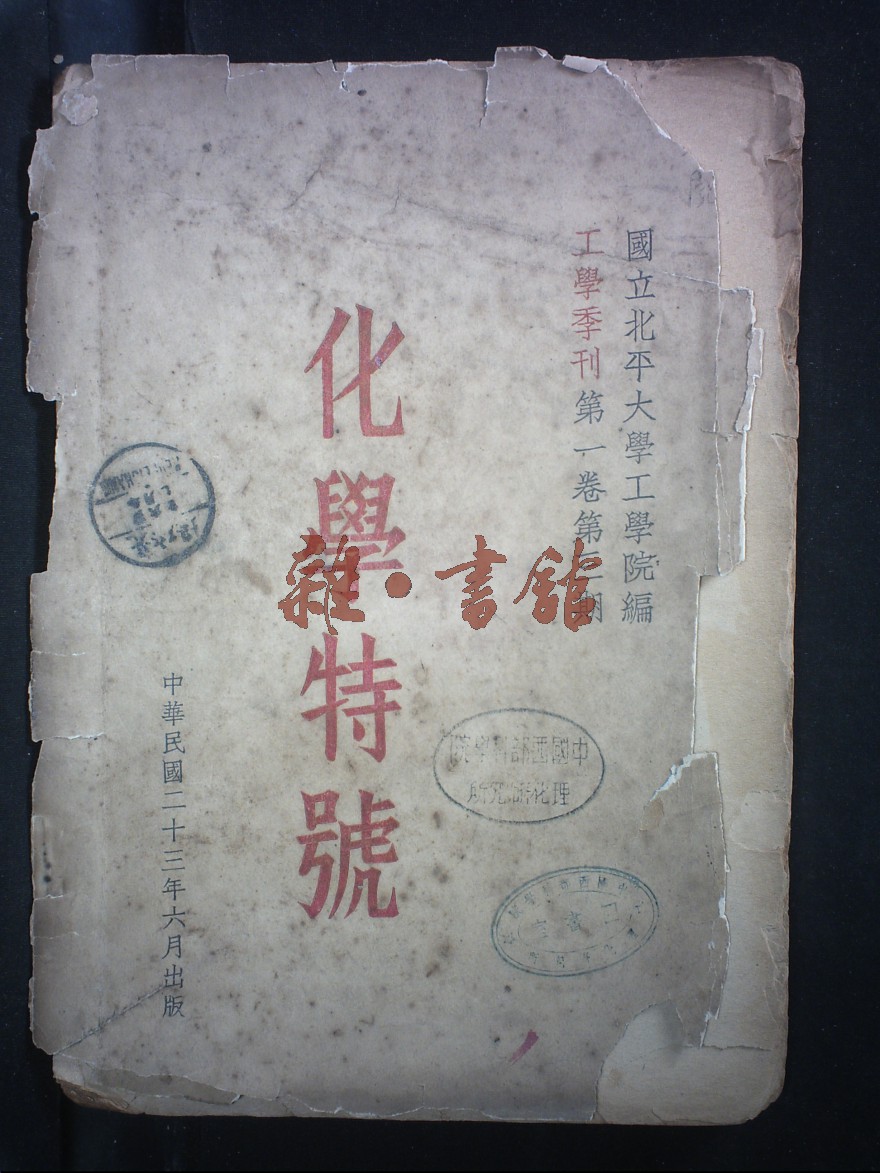 國立北平大學工學院編
工學季刊第一卷第三期
化學特號
中華民國二十三年六月出版
雜·書館
中國西部科學院
理化研究所